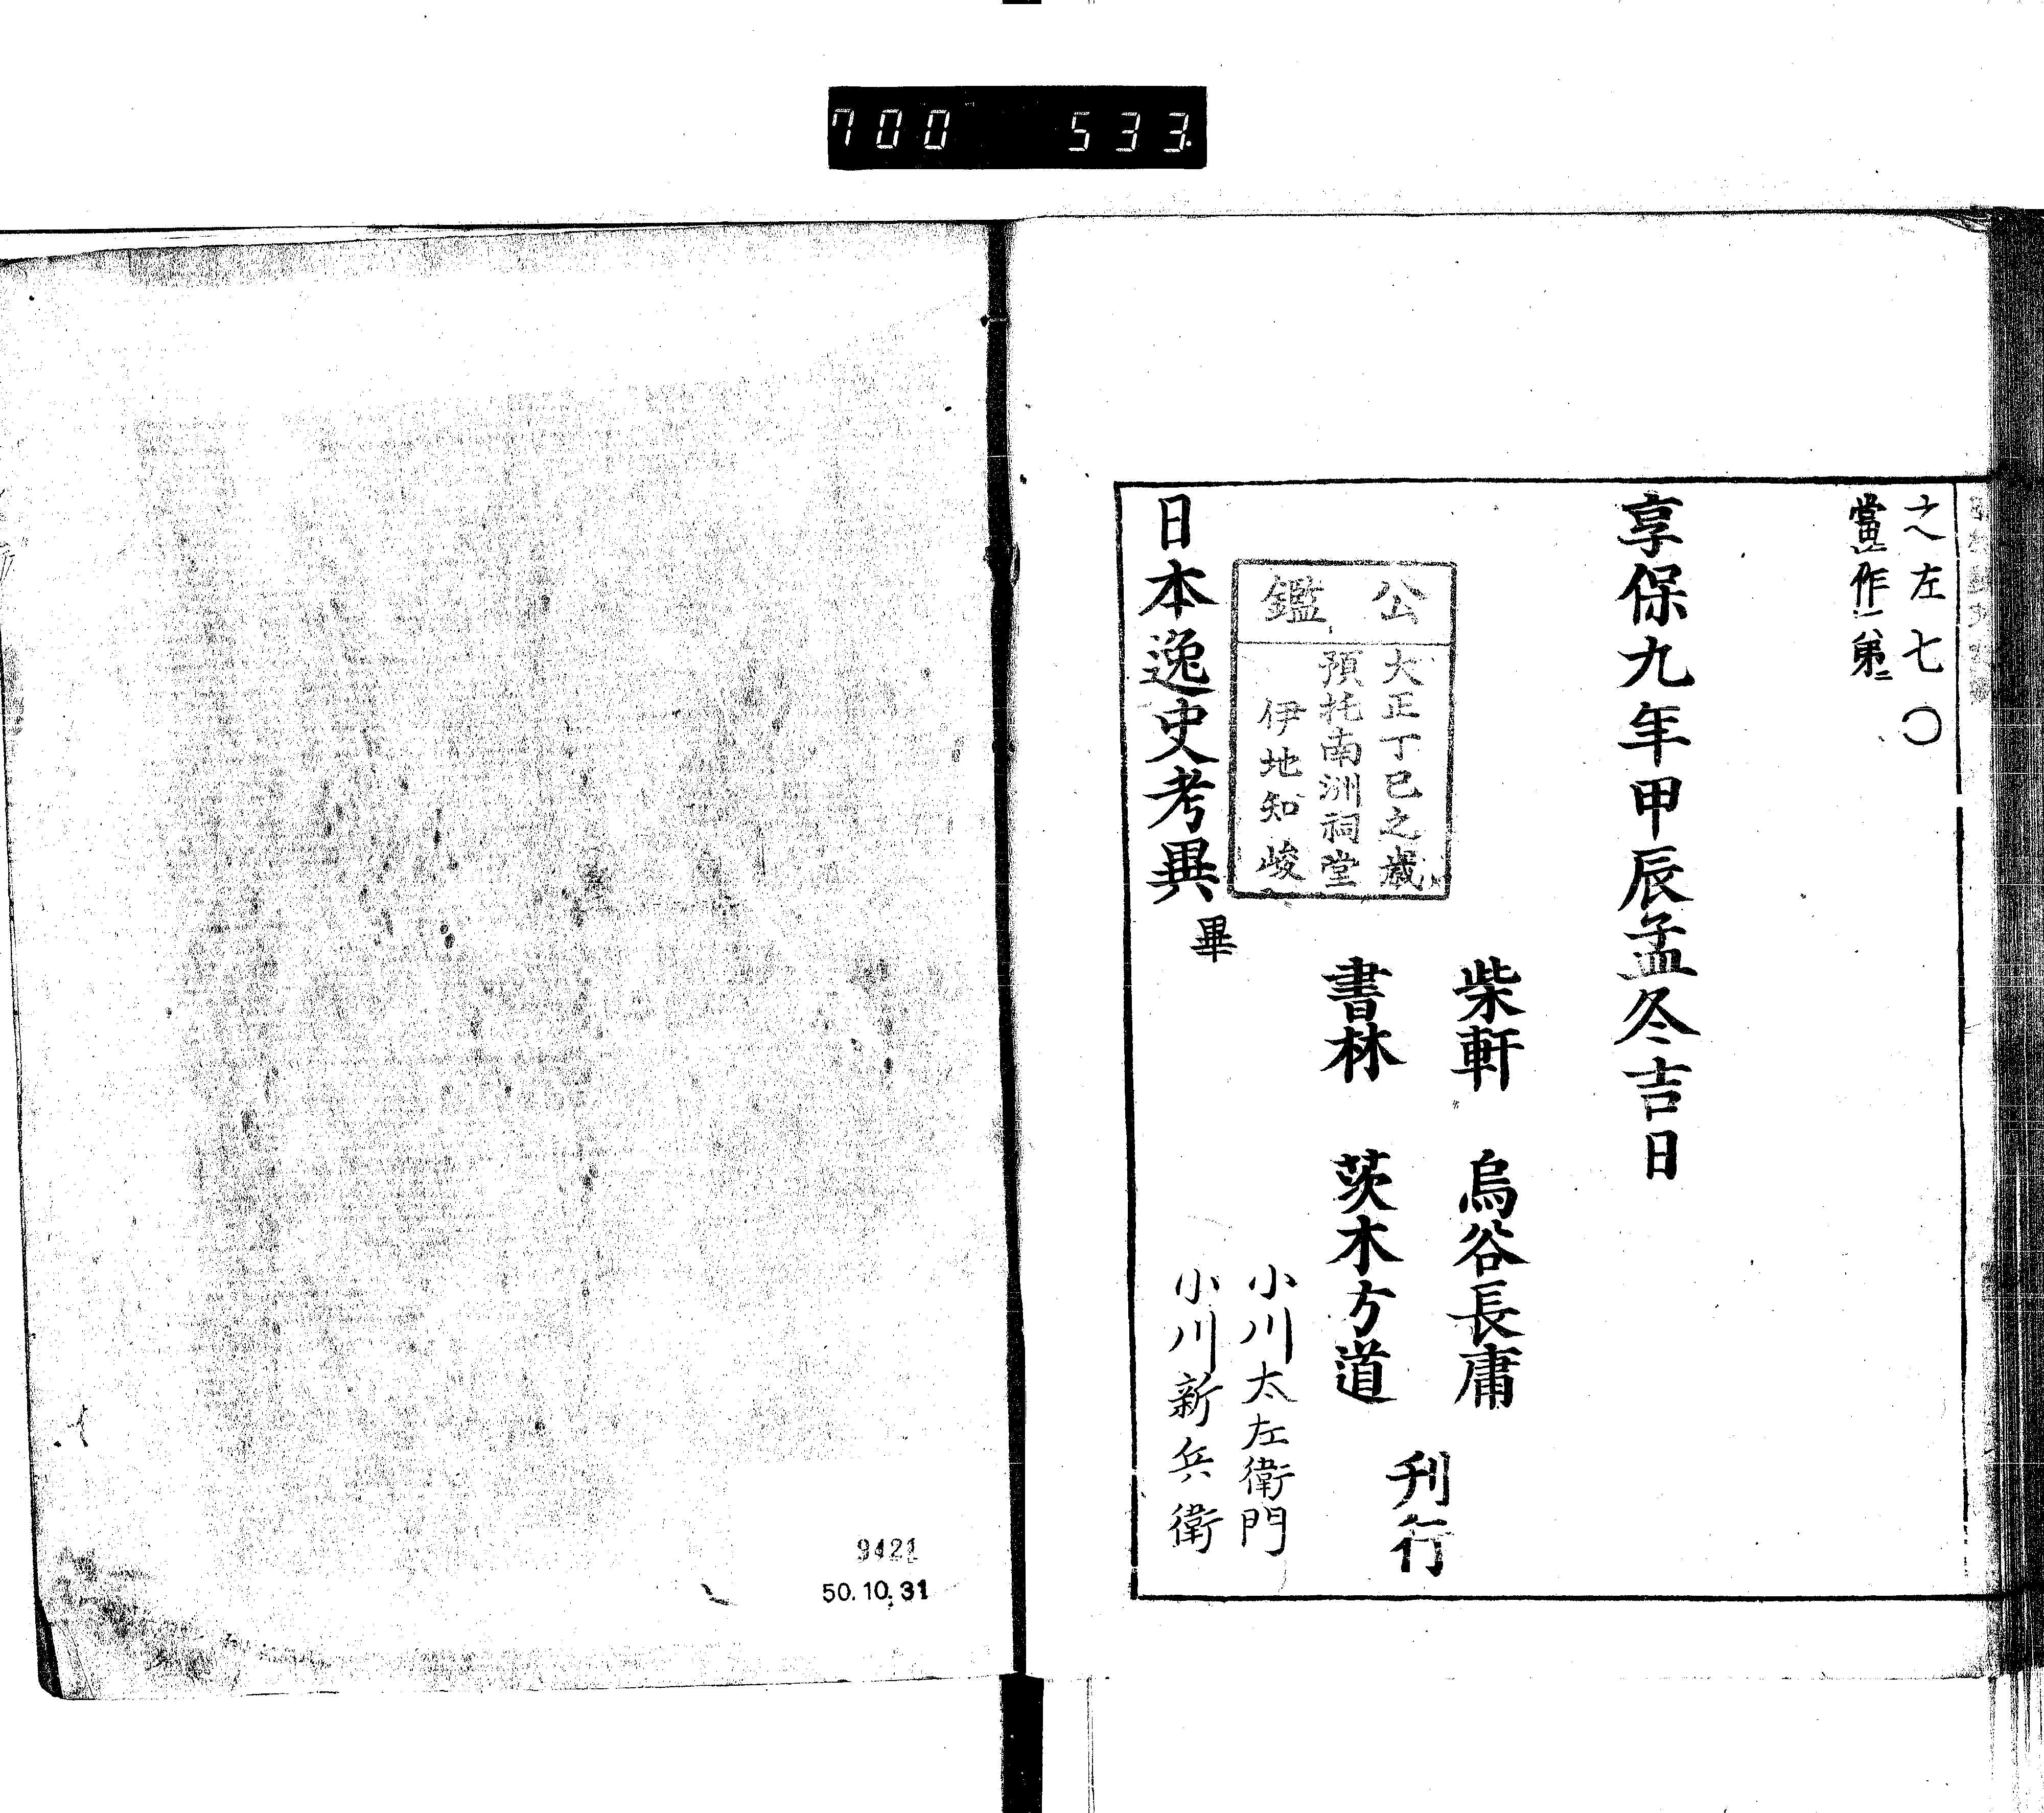 700 533.
之左七〇
當作第
享保九年甲辰孟冬吉日
柴軒 烏谷長庸
書林 茨木方道
刋行
小川太左衛門
小川新兵衛
公鑑
大正丁巳之歲
預托南洲祠堂
伊地知峻
日本逸史考異畢
9421
50.10.31